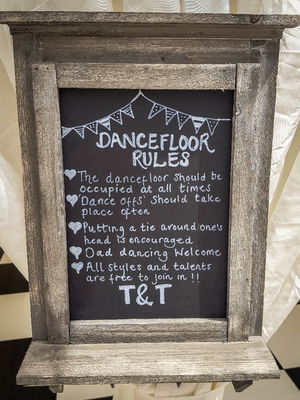 DANCEFLOOR
RULES
The dancefloor should be
occupied at all times
'Dance offs' should take
place often
Putting a tie around ones
head is encouraged
Dad dancing welcome
All styles and talents
are free to join in !!
T&T